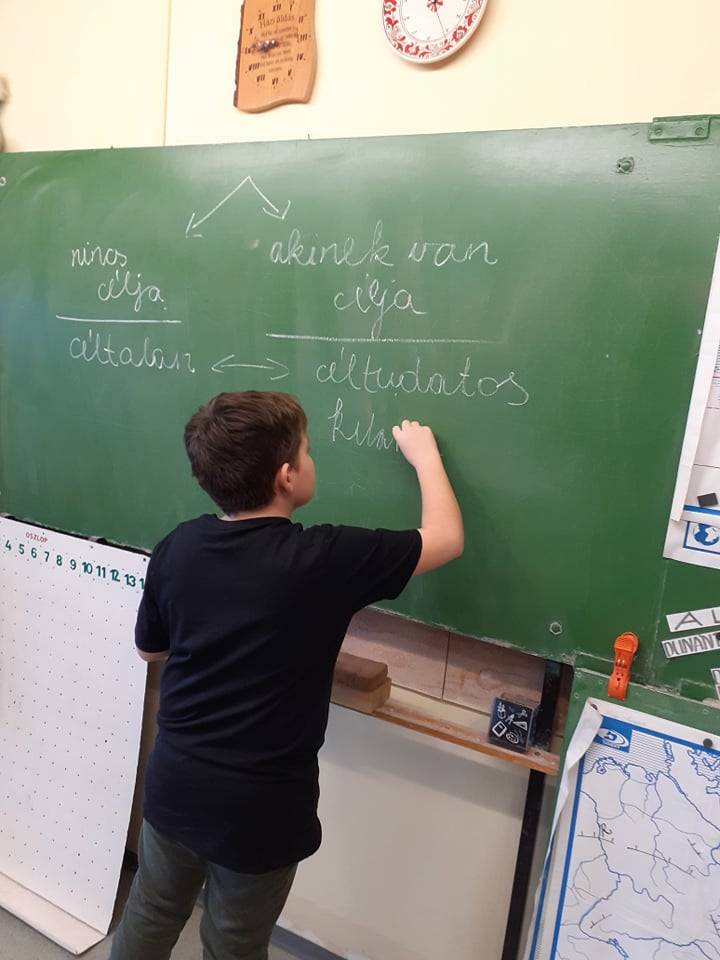 Házi áldás
nincs
célja
akinek van
célja
céltalan
céltudatos
kita
OSZLOP
4 5 6 7 8 9 10 11 12 13 1
AL
DUNÁNT